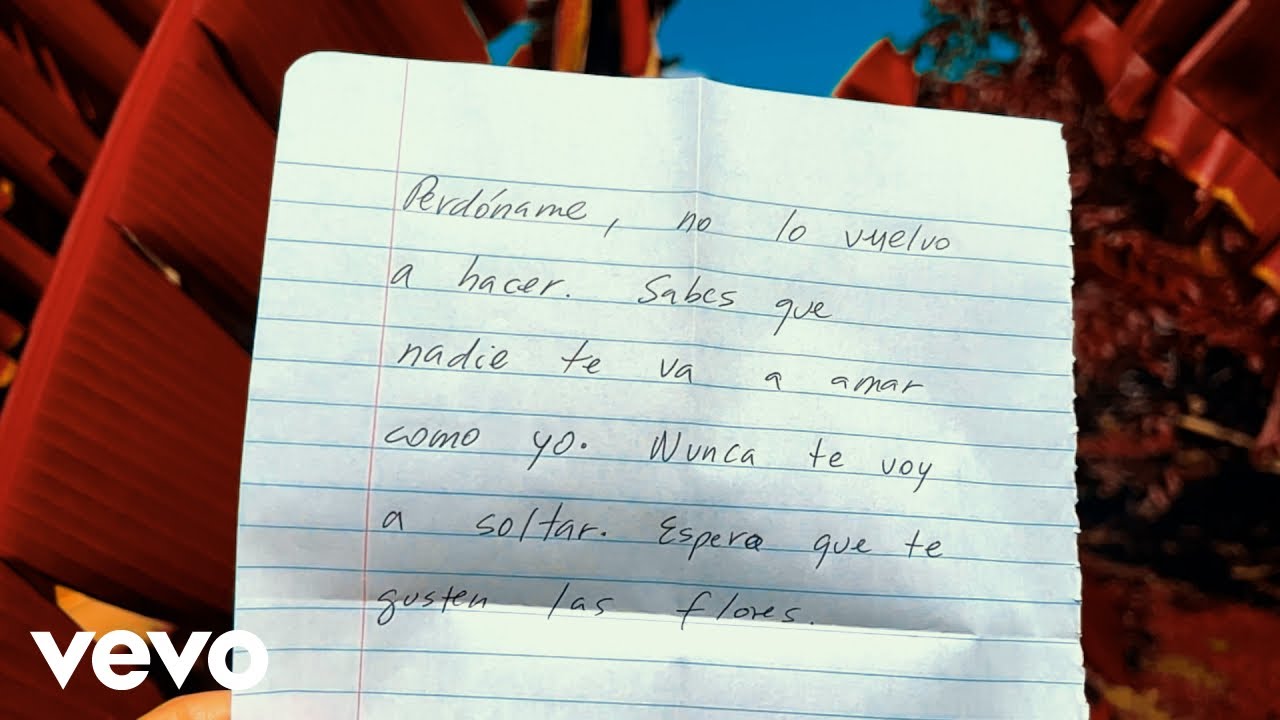 Perdóname, no lo vuelvo
a hacer. Sabes que
nadie te va a amar
como yo. Nunca te voy
a soltar. Espero que te
gusten las flores.
vevo